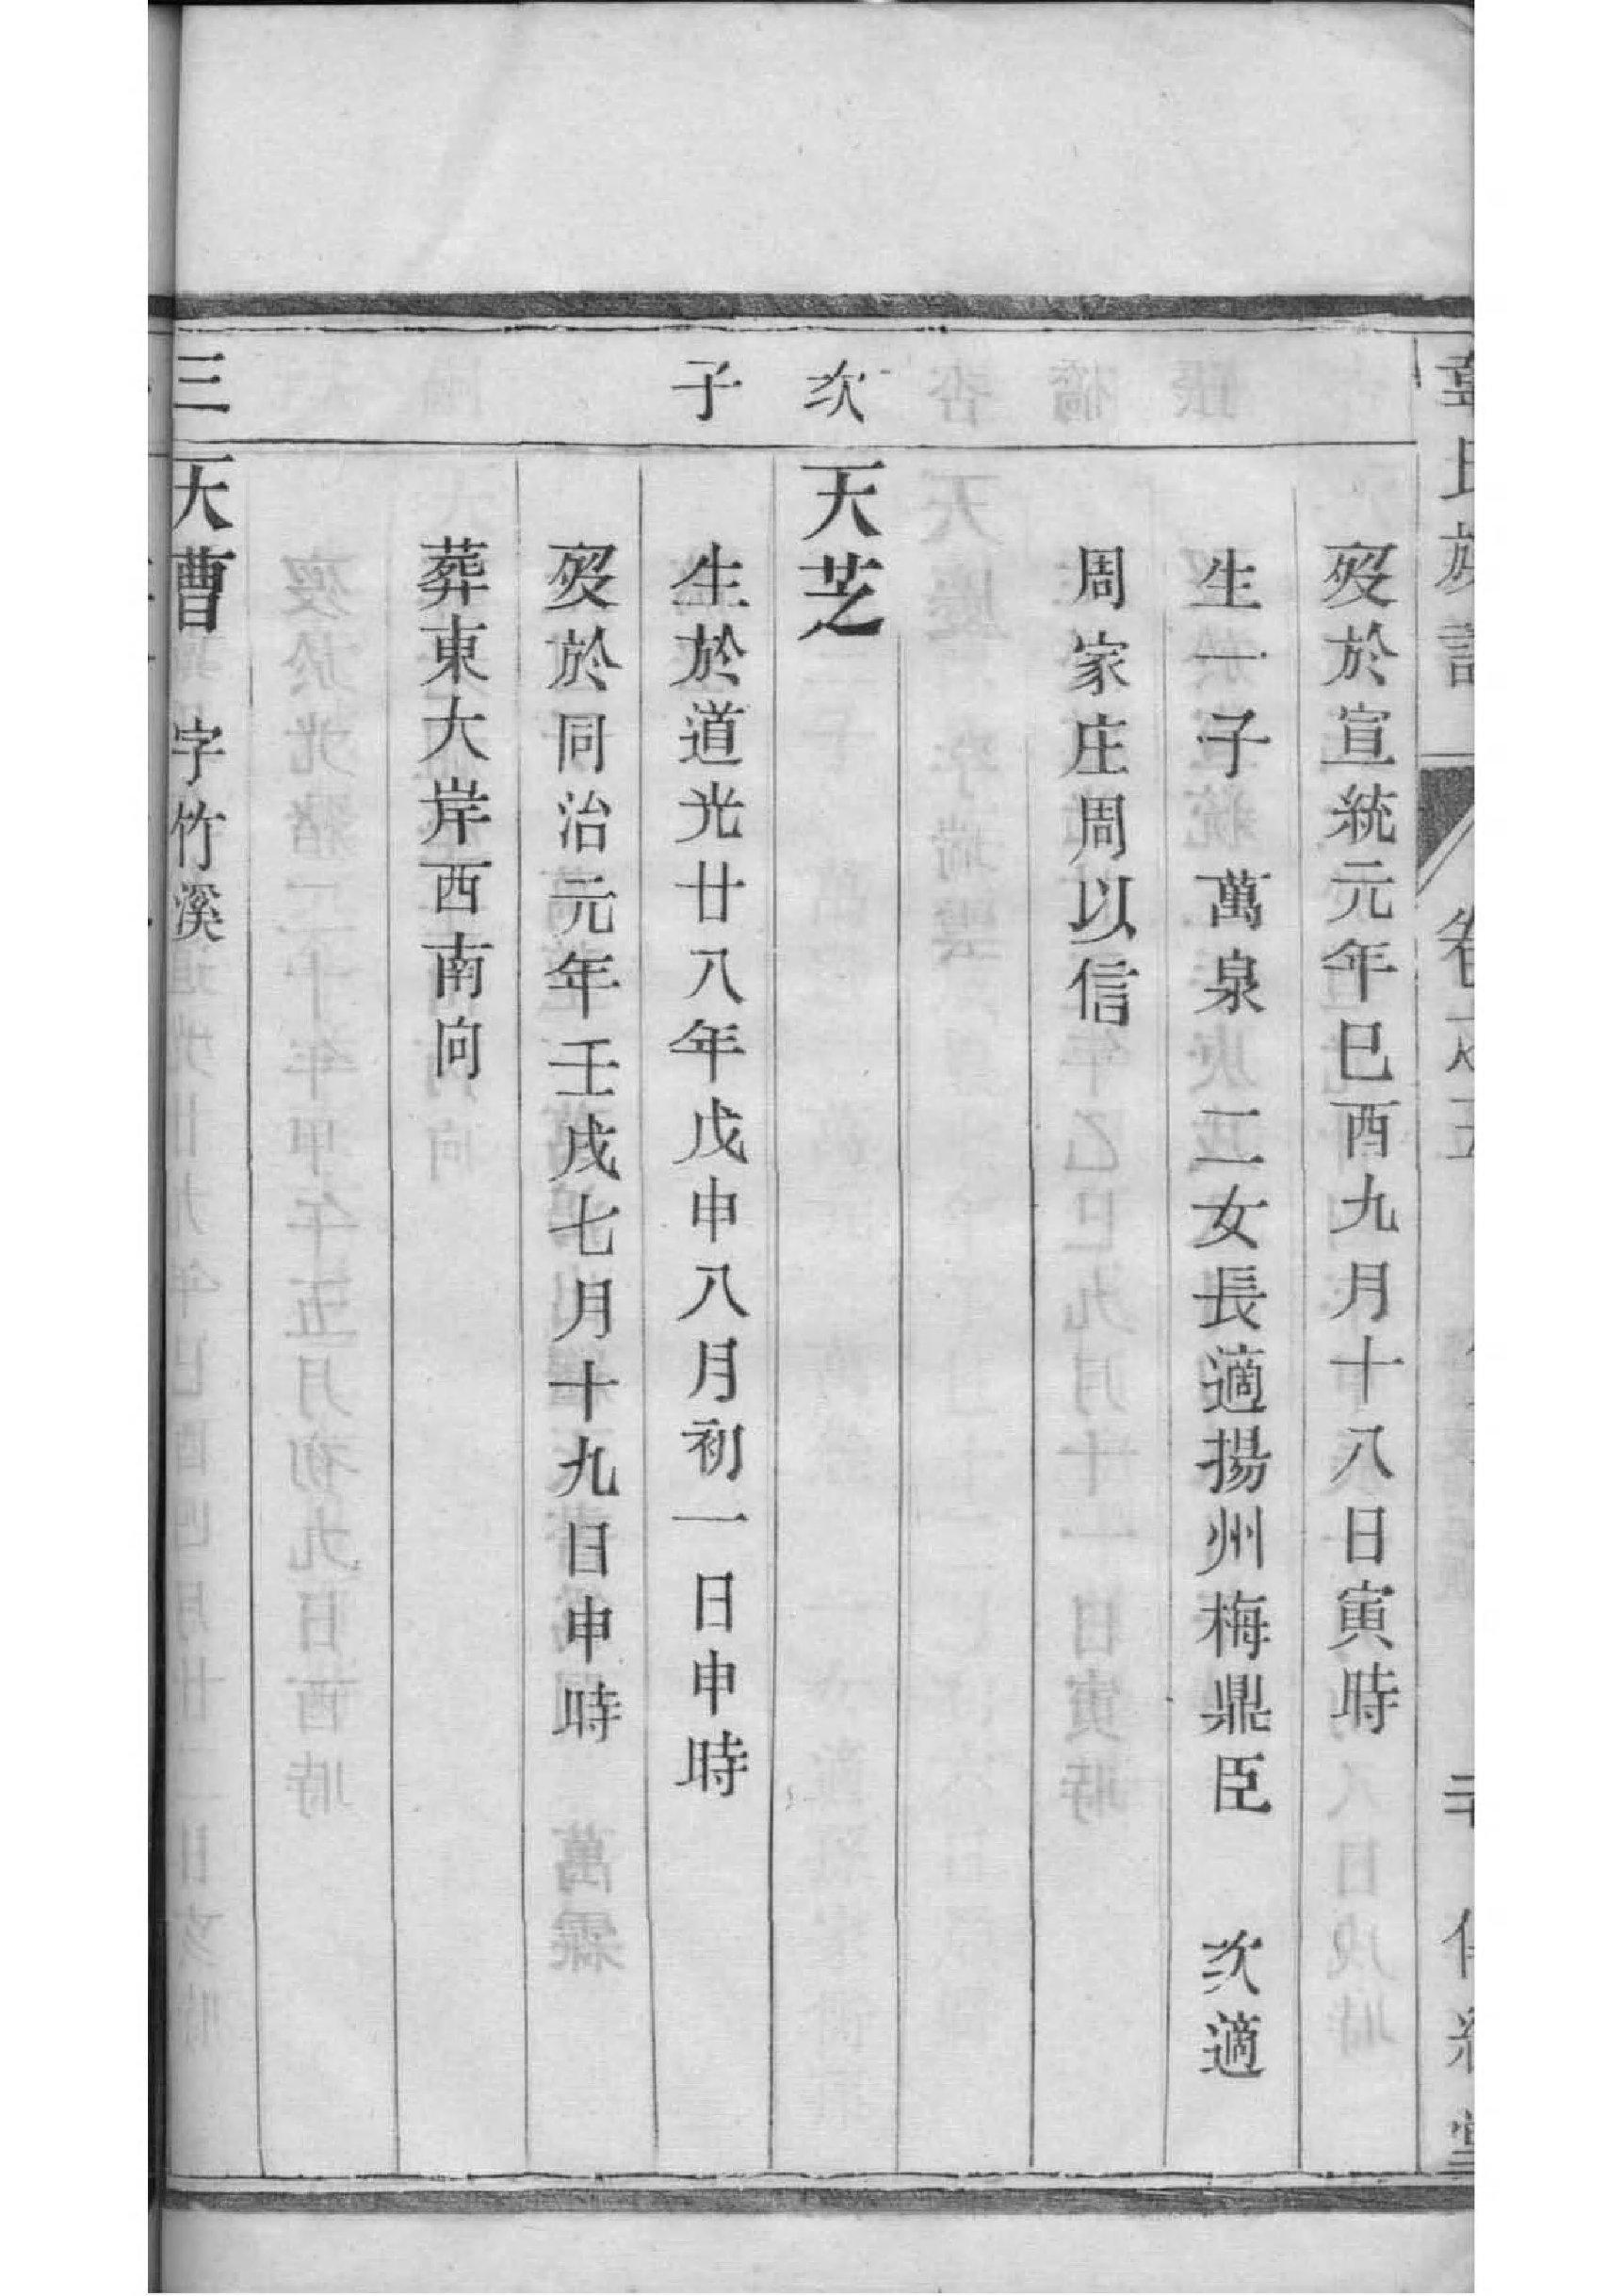 氏族譜 卷之五
歿於宣統元年巳酉九月十八日寅時
生一子 萬泉 二女長適揚州梅鼎臣 次適
周家庄周以信
次 天芝
子 生於道光廿八年戊申八月初一日申時
歿於同治元年壬戌七月十九日申時
葬東大岸西南向
三 天曹 字竹溪